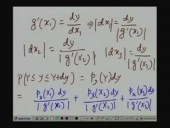 g'(x₁) = dy/dx₁ ⇒ |dx₁| = dy/|g'(x₁)|
|dx₂| = dy/|g'(x₂)| |dx₃| = dy/|g'(x₃)|
P(Y ≤ y ≤ Y+dy) = P_y(Y)dy
= P_x(x₁)dy/|g'(x₁)| + P_x(x₂)dy/|g'(x₂)| + P_x(x₃)dy/|g'(x₃)|